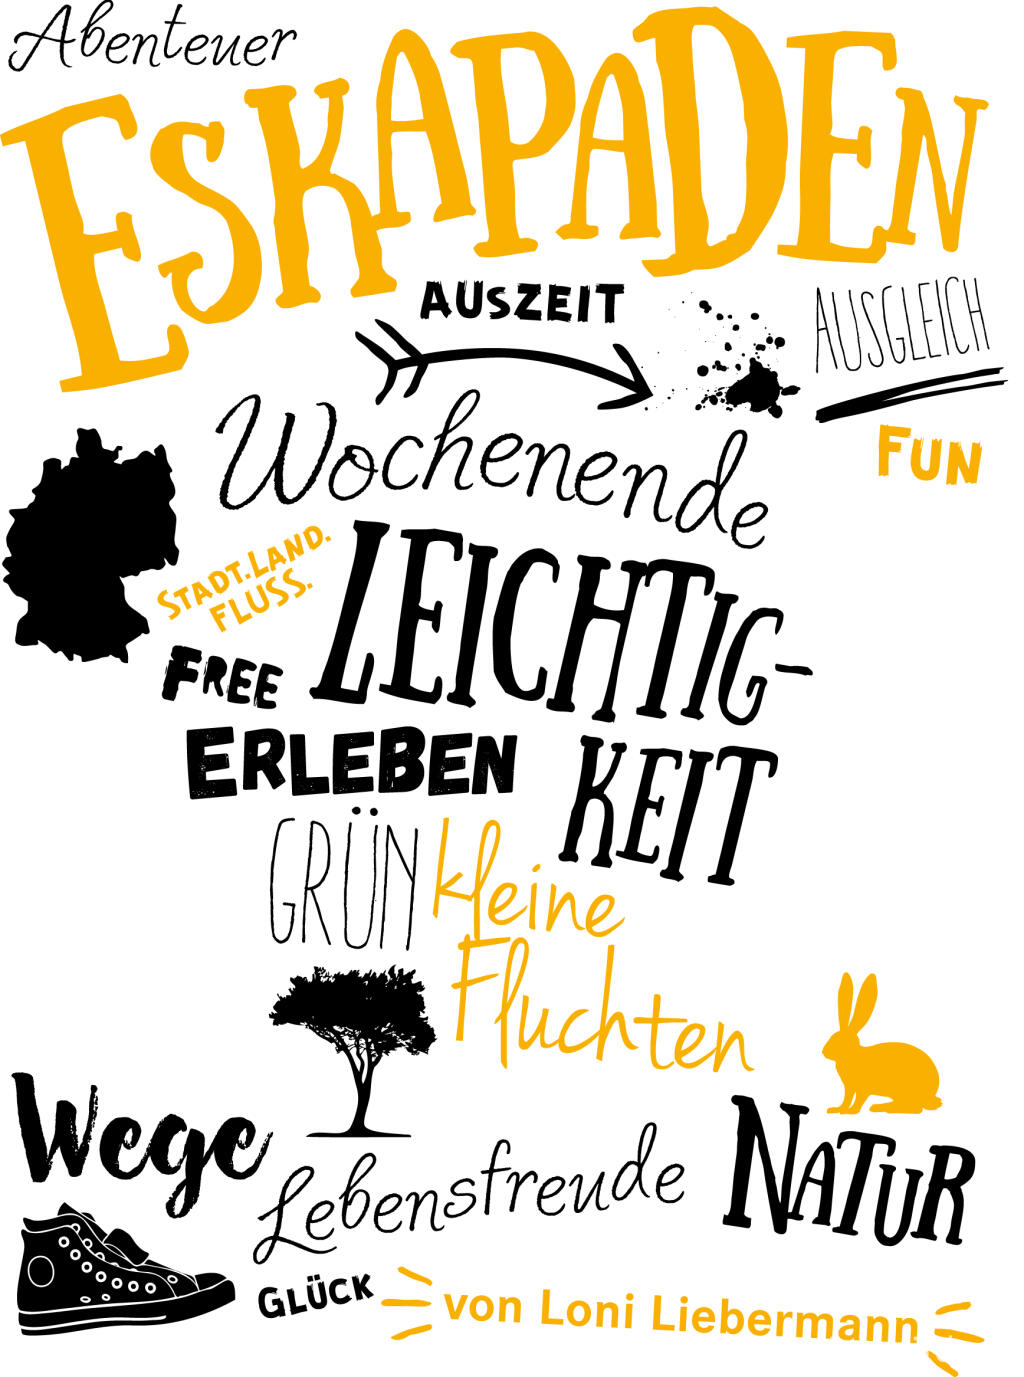 Abenteuer
ESKAPADEN
AUSZEIT
AUSGLEICH
FUN
Wochenende
STADT.LAND.
FLUSS.
LEICHTIG-
KEIT
FREE
ERLEBEN
GRÜN
kleine
Fluchten
Wege
NATUR
Lebensfreude
GLÜCK
von Loni Liebermann